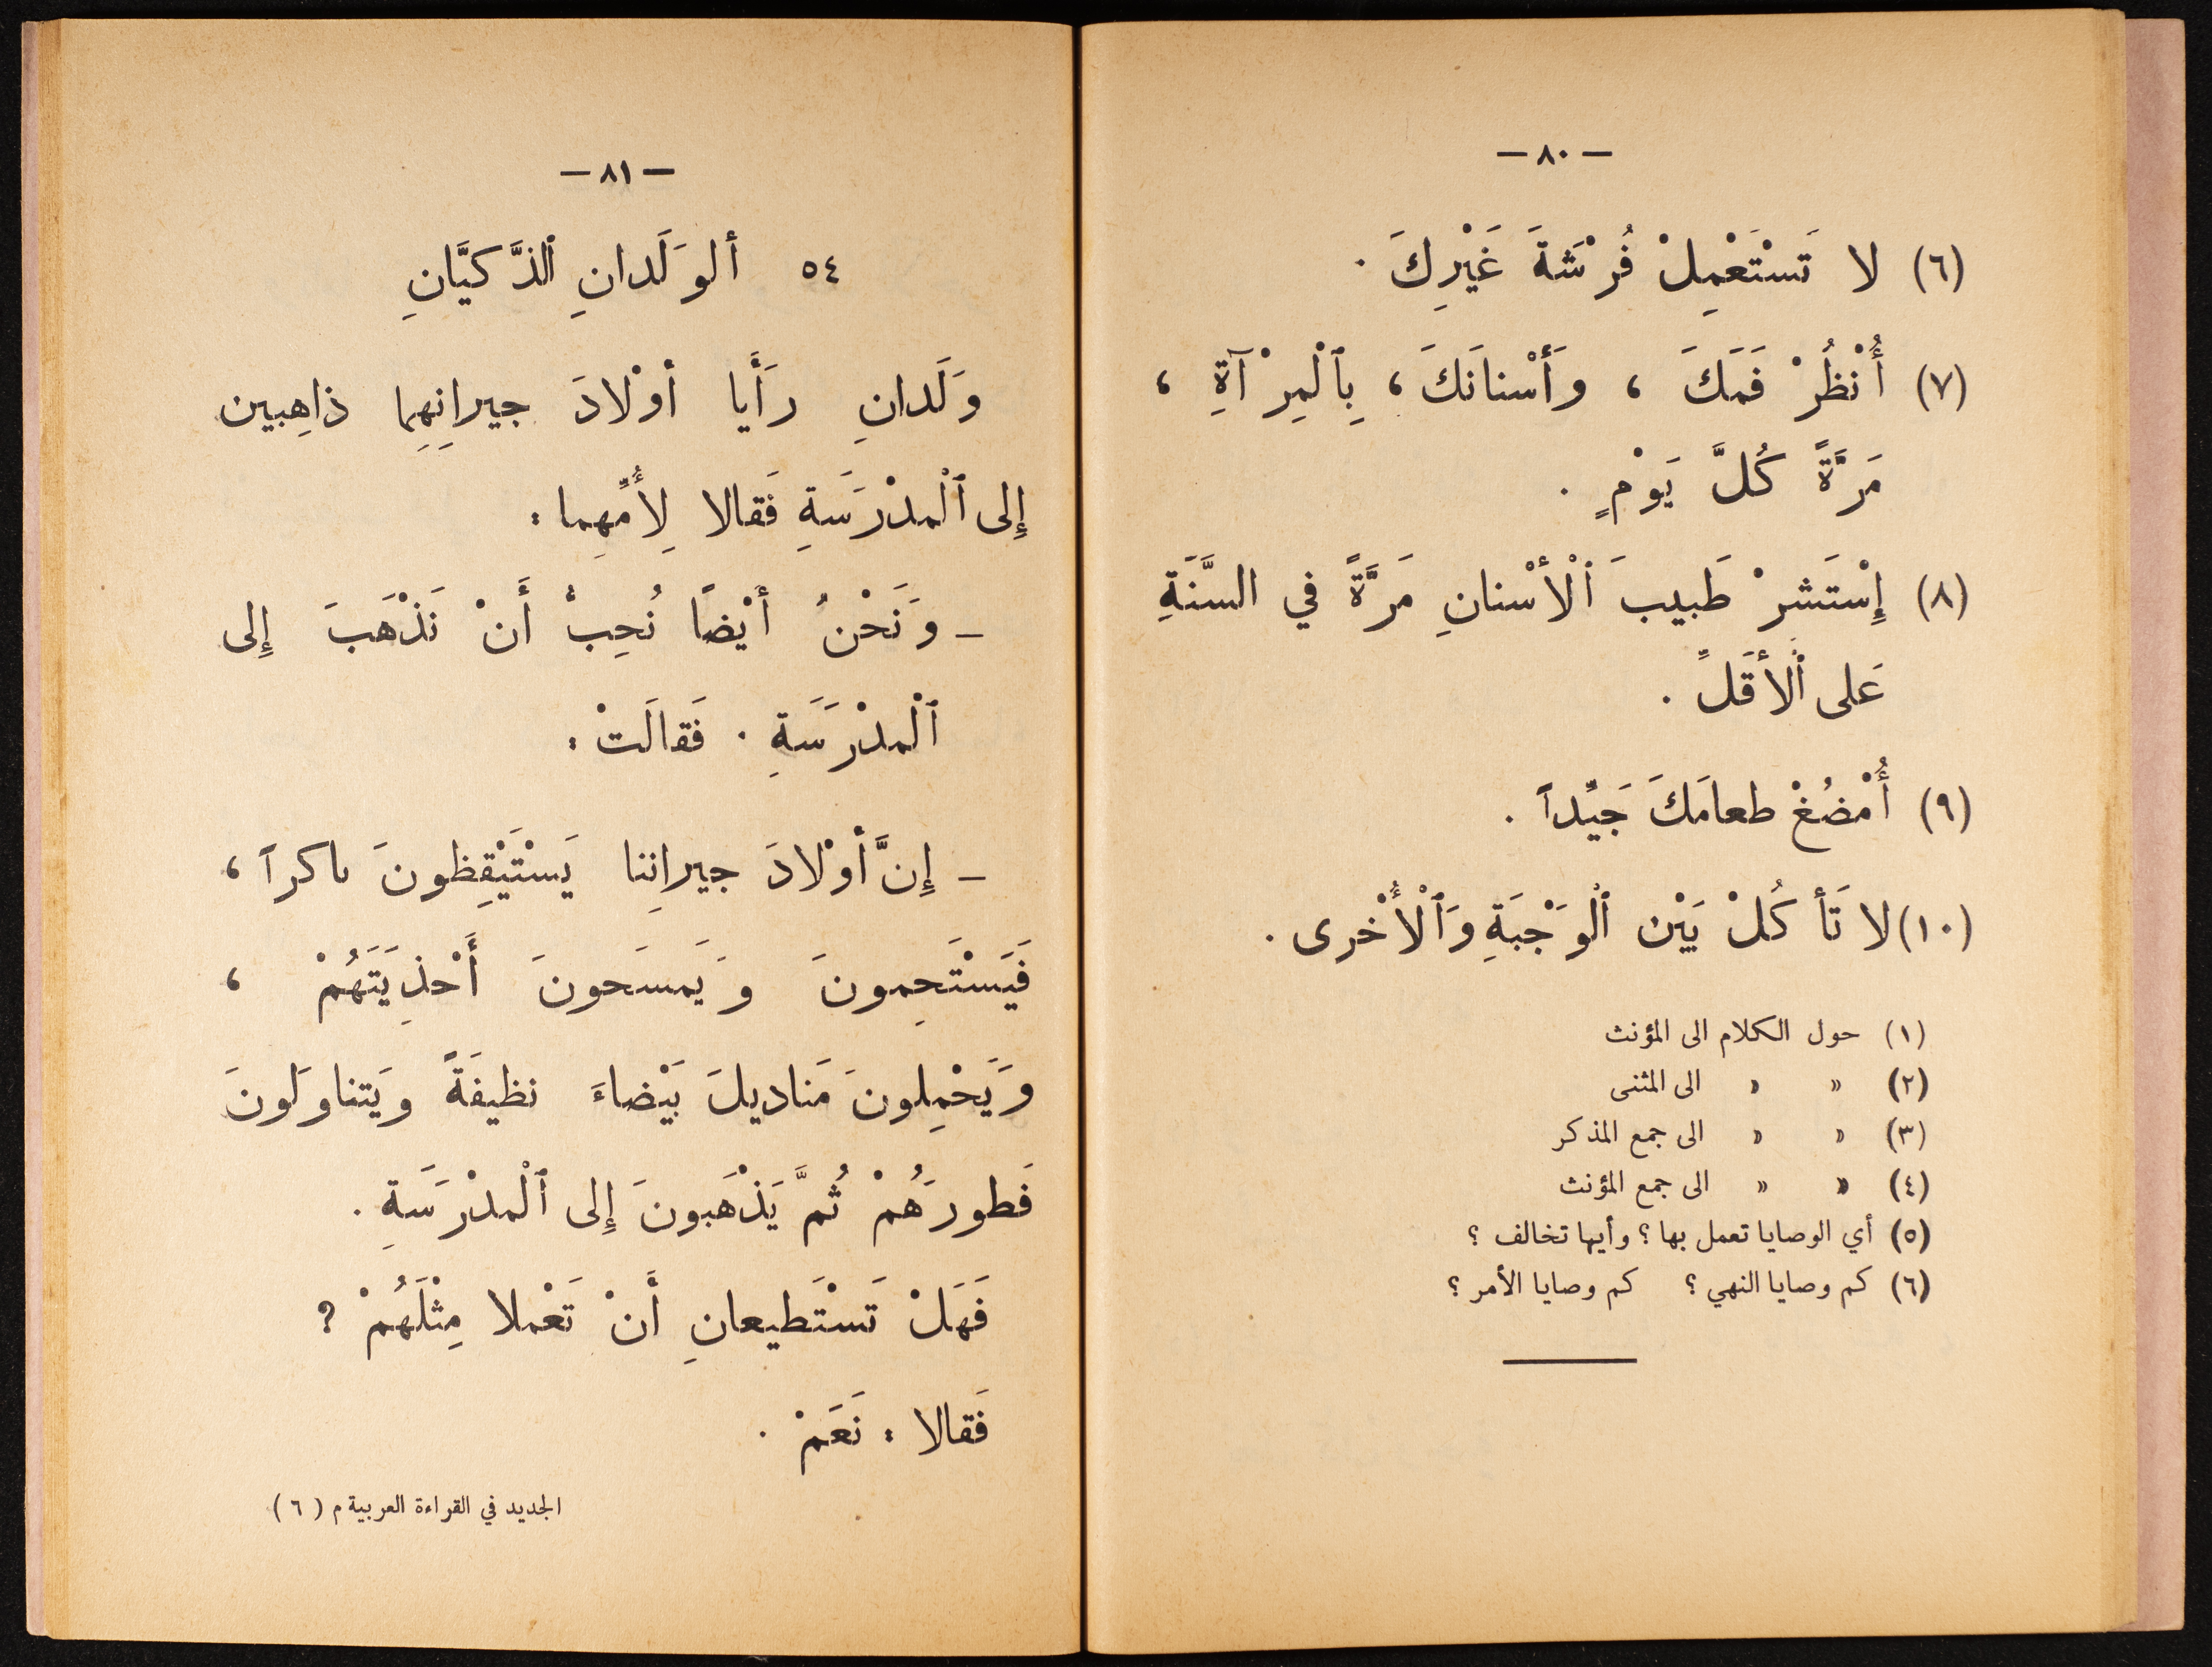 — ٨٠ —
(٦) لا تَسْتَعْمِلْ فُرْشَةَ غَيْرِكَ .
(٧) أُنْظُرْ فَمَكَ ، وَأَسْنانَكَ ، بِٱلْمِرْآةِ ،
مَرَّةً كُلَّ يَوْمٍ .
(٨) إِسْتَشِرْ طَبيبَ ٱلْأَسْنانِ مَرَّةً في السَّنَةِ
عَلى ٱلْأَقَلِّ .
(٩) أُمْضُغْ طعامَكَ جَيِّداً .
(١٠) لا تَأكُلْ بَيْن ٱلْوَجْبَةِ وَٱلْأُخْرى .
(١) حول الكلام الى المؤنث
(٢) « « الى المثنى
(٣) « « الى جمع المذكر
(٤) « « الى جمع المؤنث
(٥) أي الوصايا تعمل بها ؟ وأيها تخالف ؟
(٦) كم وصايا النهي ؟ كم وصايا الأمر ؟
— ٨١ —
٥٤ ألوَلَدانِ ٱلذَّكيَّانِ
وَلَدانِ رَأَيا أوْلادَ جيرانِهِما ذاهِبين
إِلى ٱلْمدْرَسَةِ فَقالا لِأُمِّهِما :
– وَنَحْنُ أيْضاً نُحِبُّ أَنْ نَذْهَبَ إِلى
ٱلْمدْرَسَةِ . فَقالَتْ :
– إِنَّ أوْلادَ جيرانِنا يَسْتَيْقِظونَ باكراً ،
فَيَسْتَحِمونَ وَيَمسَحونَ أَحْذِيَتَهُمْ ،
وَيَحْمِلونَ مَناديلَ بَيْضاءَ نظيفَةً وَيَتناوَلونَ
فَطورَهُمْ ثُمَّ يَذْهَبونَ إِلى ٱلْمدْرَسَةِ .
فَهَلْ تَسْتَطيعانِ أَنْ تَعْملا مِثْلَهُمْ ?
فَقالا : نَعَمْ .
الجديد في القراءة العربية م ( ٦ )